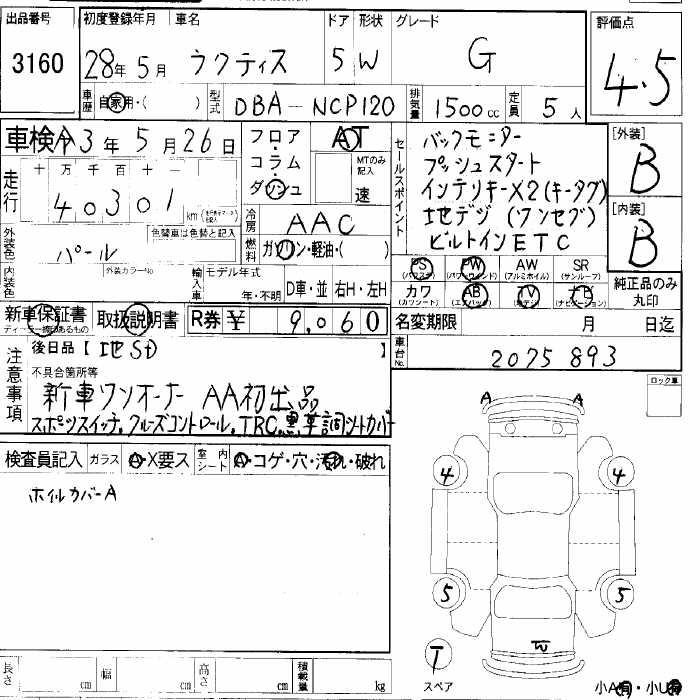 出品番号 初度登録年月 車名 ドア 形状 グレード 評価点
3160 28年 5月 ラクティス 5 W G 4.5
車歴 自家用・( ) 型式 DBA-NCP120 排気量 1500cc 定員 5人
車検 令3年 5月 26日 フロア・コラム・ダッシュ AT MTのみ記入 速
セールスポイント
バックモニター
プッシュスタート
インテリキーX2(キータグ)
地デジ (ワンセグ)
ビルトインETC
[外装]
B
[内装]
B
走行 十 万 千 百 十 一
40301 km
冷房 AAC
燃料 ガソリン・軽油・( )
外装色 パール 色替車は色替と記入
内装色 外装カラーNo
輸入車 モデル年式 年・不明 D車・並 右H・左H
PS (パワステ) PW (パワーウインド) AW (アルミホイル) SR (サンルーフ)
カワ (カワシート) AB (エアバック) TV (地デジ) ナビ (ナビゲーション)
純正品のみ丸印
新車保証書 ディーラー捺印あるもの 取扱説明書 R券 ¥ 9,060
名変期限 月 日迄
車台No. 2075893
注意事項
後日品【 地Sd 】
不具合箇所等
新車ワンオーナー AA初出品
スポーツスイッチ。クルーズコントロール。TRC。黒革調シートカバー
ロック車
検査員記入 ガラス A・X要ス 室内シート A・コゲ・穴・汚れ・破れ
ホイルカバーA
A A
4 4
5 5
W
T
スペア
小A有・小U有
長さ cm 幅 cm 高さ cm 積載量 kg